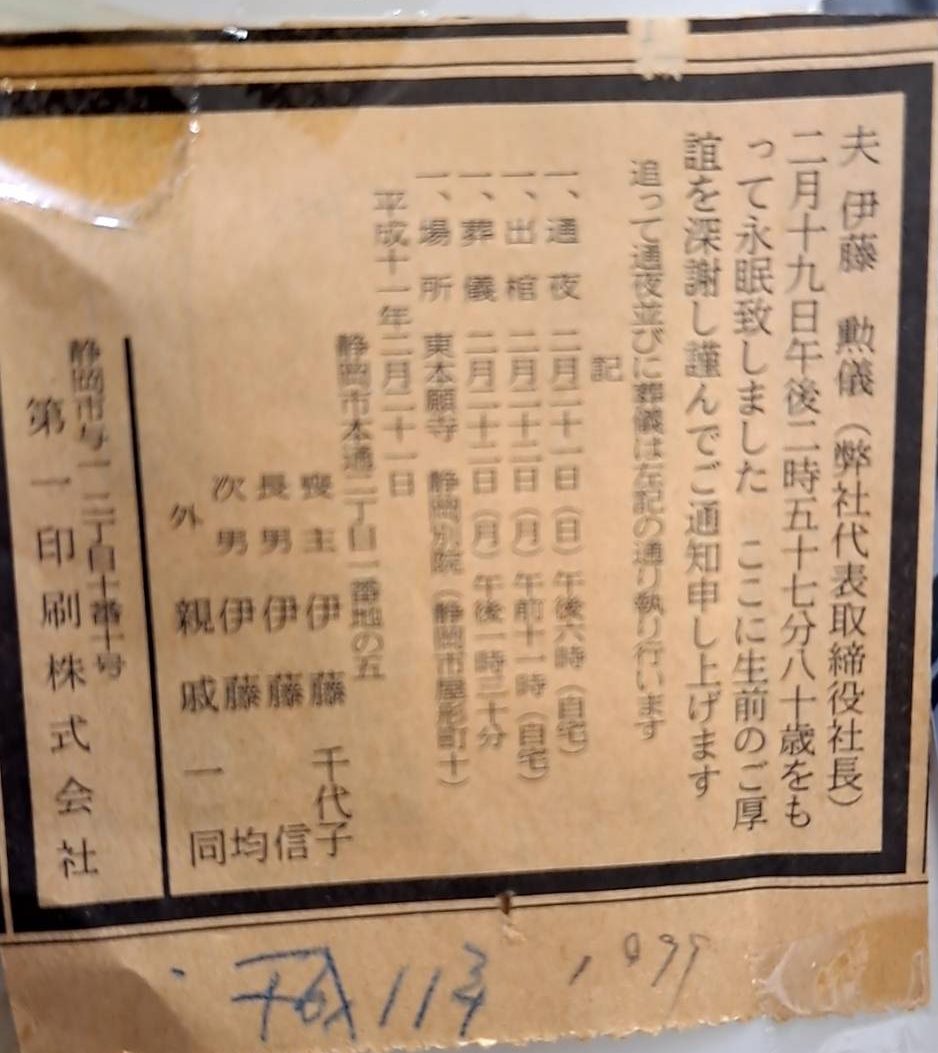 夫 伊藤 勲儀（弊社代表取締役社長）
二月十九日午後二時五十七分八十歳をも
って永眠致しました ここに生前のご厚
誼を深謝し謹んでご通知申し上げます
追って通夜並びに葬儀は左記の通り執り行います
記
一、通夜 二月二十一日（日）午後六時（自宅）
一、出棺 二月二十二日（月）午前十一時（自宅）
一、葬儀 二月二十二日（月）午後一時三十分
一、場所 東本願寺 静岡別院（静岡市屋形町十）
平成十一年二月二十一日
静岡市本通二丁目一番地の五
喪主 伊藤 千代子
長男 伊藤 信
次男 伊藤 均
外 親戚一同
静岡市与一二丁目十番十号
第一印刷株式会社
平成11年 1999